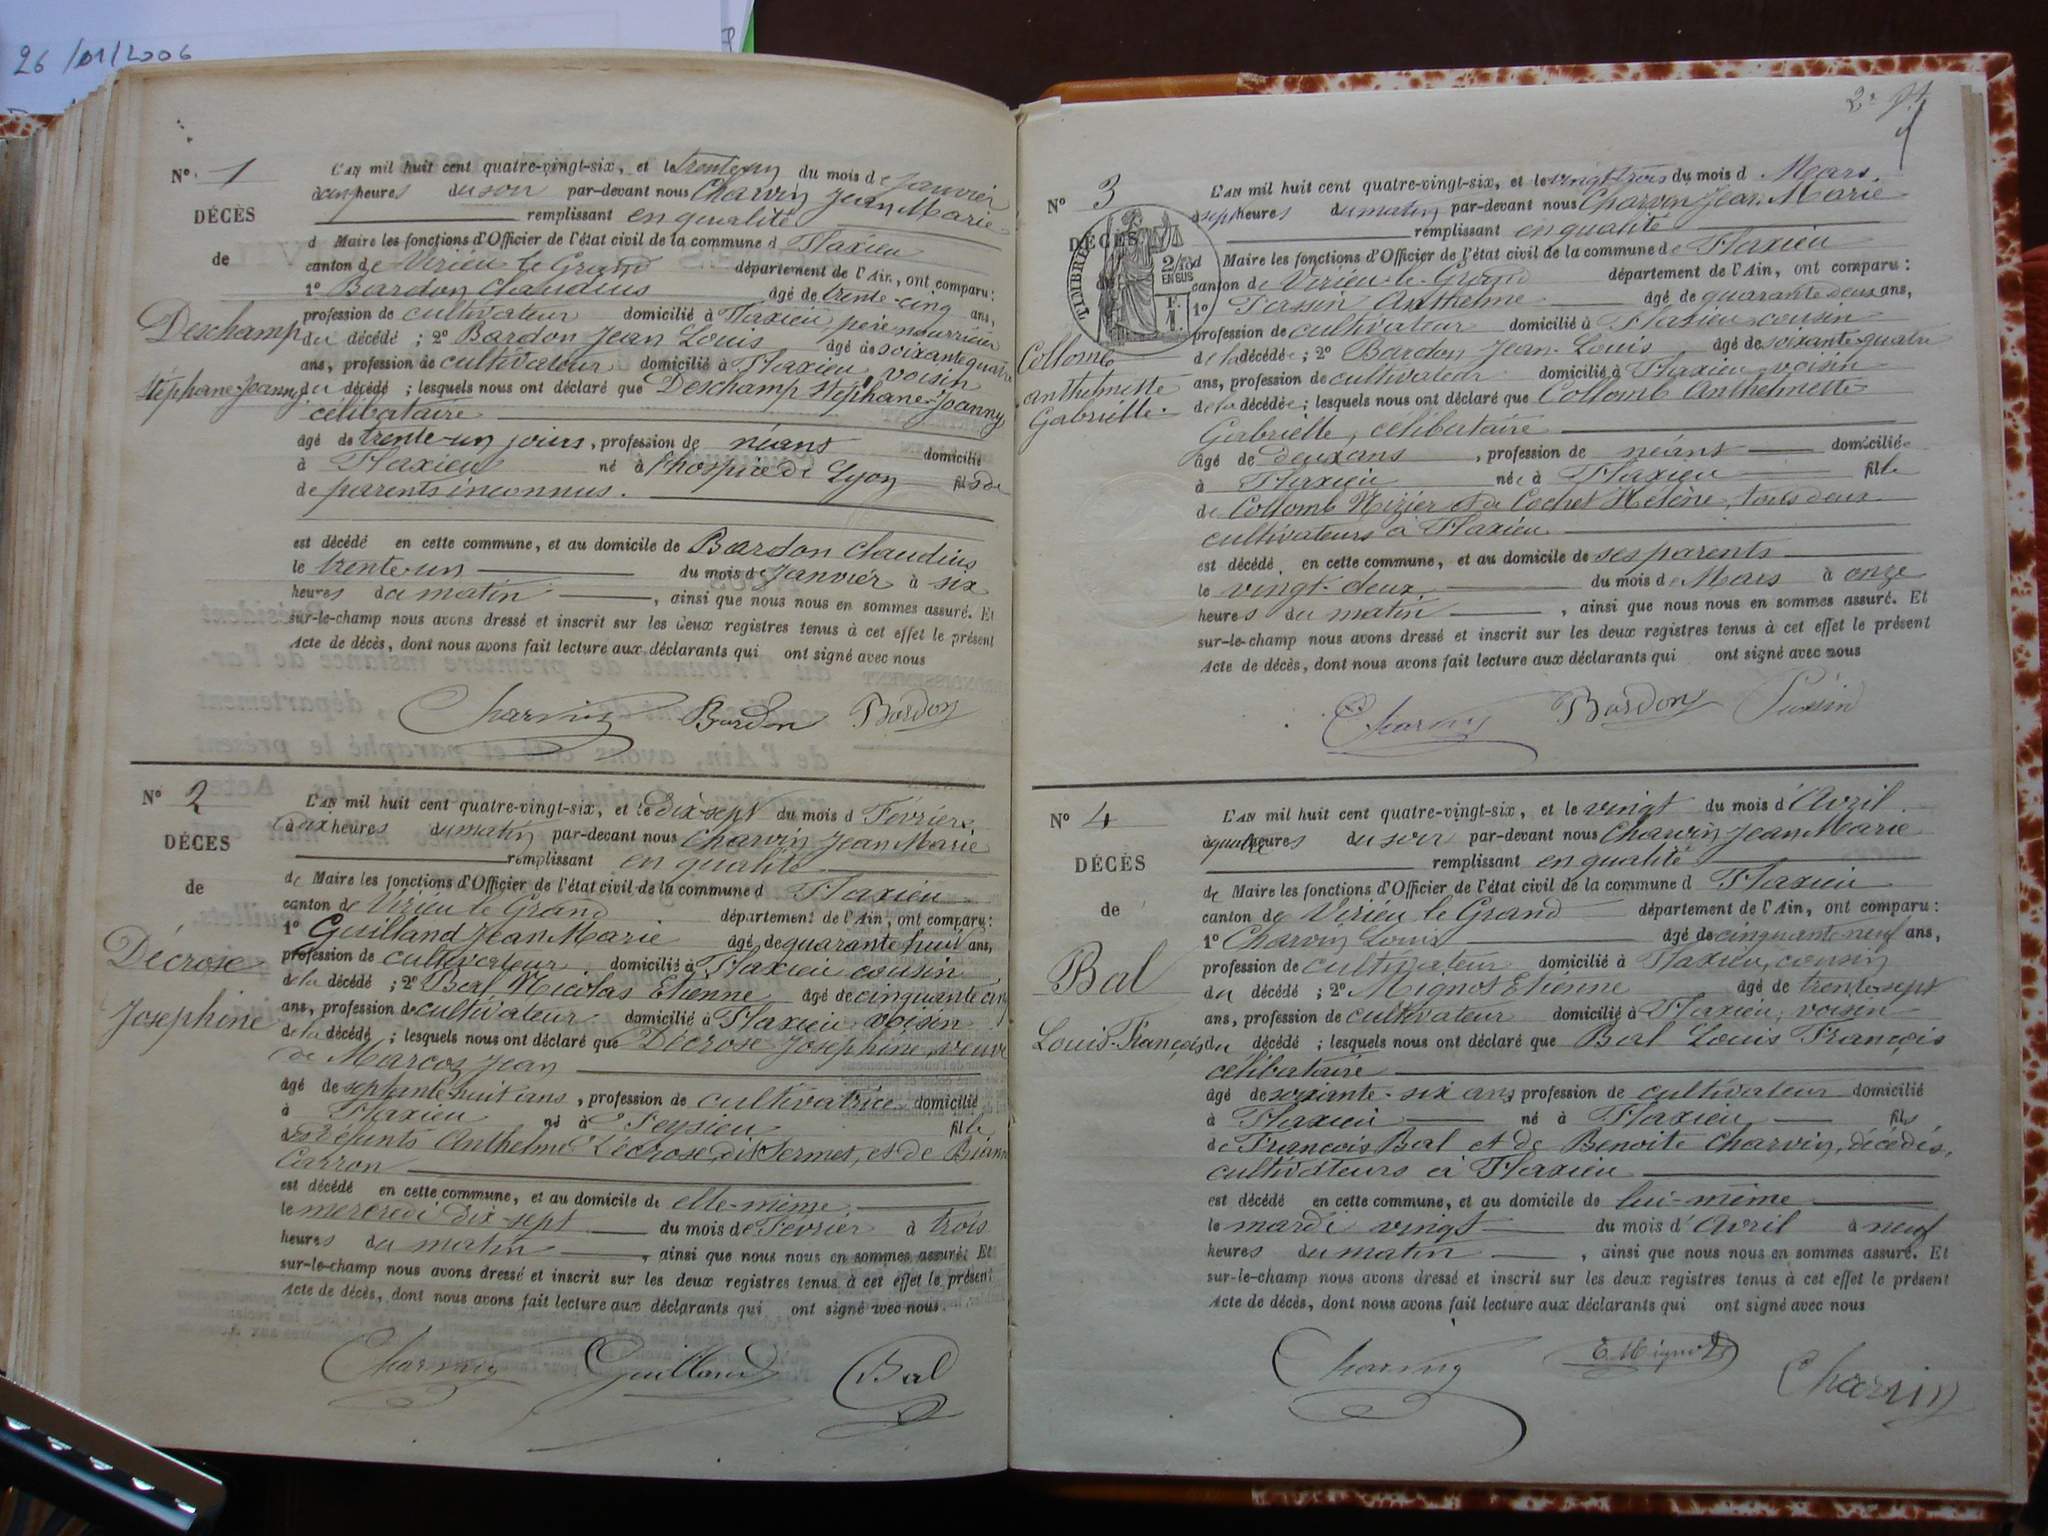 26/01/2006
N° 1
DÉCÈS
de
Deschamp
Stéphane-Joanny
L'AN mil huit cent quatre-vingt-six, et le trente-un du mois de Janvier
à cinq heures du soir par-devant nous Charvin Jean Marie
remplissant en qualité
d Maire les fonctions d'Officier de l'état civil de la commune d Flaxieu
canton de Virieu le Grand département de l'Ain, ont comparu :
1° Bardon Claudius âgé de trente-cinq ans,
profession de cultivateur domicilié à Flaxieu, père nourricier
du décédé ; 2° Bardon Jean Louis âgé de soixante quatre
ans, profession de cultivateur domicilié à Flaxieu, voisin
du décédé ; lesquels nous ont déclaré que Deschamp Stéphane-Joanny
célibataire
âgé de trente-un jours, profession de néant domicilié
à Flaxieu né à l'hospice de Lyon fils de
de parents inconnus.
est décédé en cette commune, et au domicile de Bardon Claudius
le trente-un du mois de Janvier à six
heures du matin, ainsi que nous nous en sommes assuré. Et
sur-le-champ nous avons dressé et inscrit sur les deux registres tenus à cet effet le présent
Acte de décès, dont nous avons fait lecture aux déclarants qui ont signé avec nous
Charvin Bardon Bardon
N° 2
DÉCÈS
de
Décrose
Josephine
L'AN mil huit cent quatre-vingt-six, et le Dix-sept du mois d Février,
à dix heures du matin par-devant nous Charvin Jean Marie
remplissant en qualité
de Maire les fonctions d'Officier de l'état civil de la commune d Flaxieu
canton de Virieu le Grand département de l'Ain, ont comparu :
1° Guilland Jean Marie âgé de quarante huit ans,
profession de cultivateur domicilié à Flaxieu cousin
de la décédé ; 2° Bal Nicolas Etienne âgé de cinquante cinq
ans, profession de cultivateur domicilié à Flaxieu voisin
de la décédé ; lesquels nous ont déclaré que Décrose Josephine, veuve
de Marcoz Jean
âgé de septante-huit ans, profession de cultivatrice domicilié
à Flaxieu né à Peysieu fille
des défunts Anthelme Décrose, dit Sermet, et de
Carron
est décédé en cette commune, et au domicile de elle-même
le mercredi dix-sept du mois de Février à trois
heures du matin, ainsi que nous nous en sommes assuré. Et
sur-le-champ nous avons dressé et inscrit sur les deux registres tenus à cet effet le présent
Acte de décès, dont nous avons fait lecture aux déclarants qui ont signé avec nous.
Charvin Guilland Bal
N° 3
DÉCÈS
de
TIMBRE
2/10d
EN SUS
Collomb
Anthelmette
Gabrielle.
L'AN mil huit cent quatre-vingt-six, et le vingt-trois du mois d Mars.
à sept heures du matin par-devant nous Charvin Jean Marie
remplissant en qualité
Maire les fonctions d'Officier de l'état civil de la commune de Flaxieu
canton de Virieu-le-Grand département de l'Ain, ont comparu :
1° Tassin Anthelme âgé de quarante deux ans,
profession de cultivateur domicilié à Flaxieu cousin
de la décédée ; 2° Bardon Jean-Louis âgé de soixante-quatre
ans, profession de cultivateur domicilié à Flaxieu, voisin
de la décédée ; lesquels nous ont déclaré que Collomb Anthelmette
Gabrielle, célibataire
âgé de deux ans, profession de néant domiciliée
à Flaxieu née à Flaxieu fille
de Collomb Nizier et de Cochet Hélène, tous deux
cultivateurs à Flaxieu
est décédé en cette commune, et au domicile de ses parents
le vingt-deux du mois de Mars à onze
heures du matin, ainsi que nous nous en sommes assuré. Et
sur-le-champ nous avons dressé et inscrit sur les deux registres tenus à cet effet le présent
Acte de décès, dont nous avons fait lecture aux déclarants qui ont signé avec nous
Charvin Bardon
N° 4
DÉCÈS
de
Bal
Louis-François
L'AN mil huit cent quatre-vingt-six, et le vingt du mois d'Avril
à quatre heures du soir par-devant nous Charvin Jean Marie
remplissant en qualité
de Maire les fonctions d'Officier de l'état civil de la commune d Flaxieu
canton de Virieu le Grand département de l'Ain, ont comparu :
1° Charvin Louis âgé de cinquante neuf ans,
profession de cultivateur domicilié à Flaxieu, cousin
du décédé ; 2° Mignot Etienne âgé de trente sept
ans, profession de cultivateur domicilié à Flaxieu, voisin
du décédé ; lesquels nous ont déclaré que Bal Louis François
célibataire
âgé de soixante-six ans, profession de cultivateur domicilié
à Flaxieu né à Flaxieu fils
de François Bal et de Benoite Charvin, décédés,
cultivateurs à Flaxieu
est décédé en cette commune, et au domicile de lui-même
le mardi vingt du mois d'Avril à neuf
heures du matin, ainsi que nous nous en sommes assuré. Et
sur-le-champ nous avons dressé et inscrit sur les deux registres tenus à cet effet le présent
Acte de décès, dont nous avons fait lecture aux déclarants qui ont signé avec nous
Charvin E. Mignot Charvin